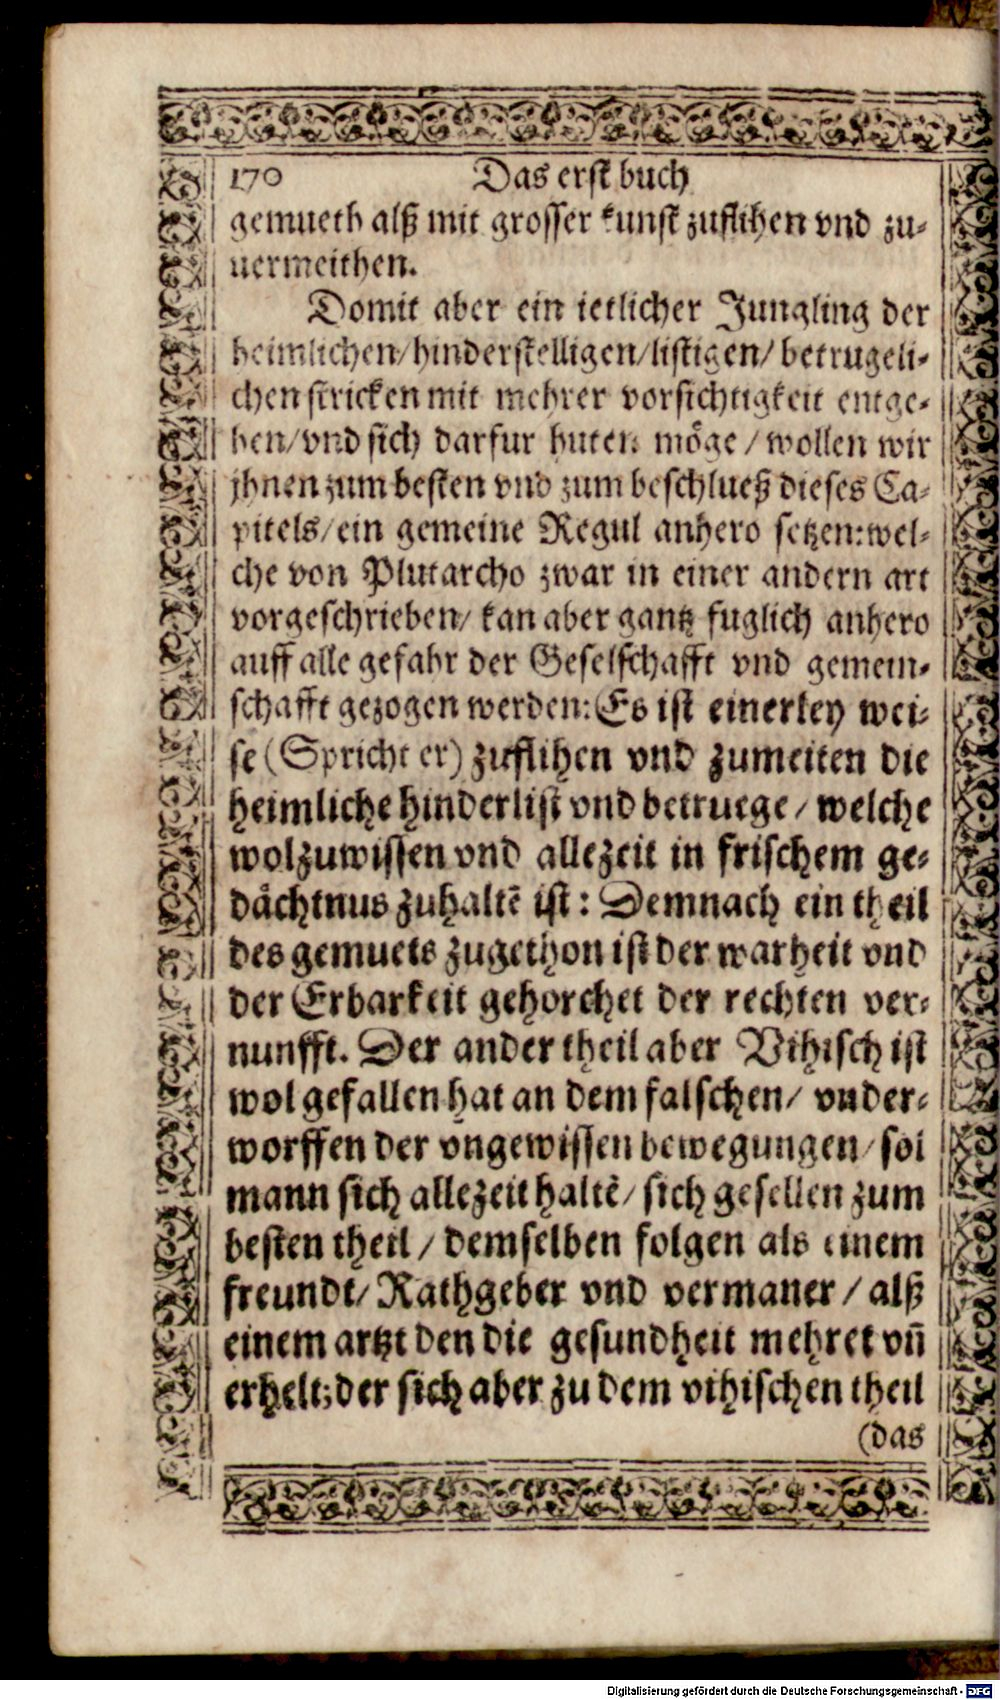 170 Das erst buch
gemueth alß mit grosser kunst zuflihen vnd zu-
uermeithen.
Domit aber ein ietlicher Jungling der
heimlichen/hinderstelligen/listigen/betrugeli-
chen stricken mit mehrer vorsichtigkeit entge-
hen/vnd sich darfur huten möge/wollen wir
jhnen zum besten vnd zum beschlueß dieses Ca-
pitels/ein gemeine Regul anhero setzen:wel-
che von Plutarcho zwar in einer andern art
vorgeschrieben/kan aber gantz fuglich anhero
auff alle gefahr der Geselschafft vnd gemein-
schafft gezogen werden:Es ist einerley wei-
se (Spricht er) zuflihen vnd zumeiten die
heimliche hinderlist vnd betruege/welche
wolzuwissen vnd allezeit in frischem ge-
dächtnus zuhaltē ist: Demnach ein theil
des gemuets zugethon ist der warheit vnd
der Erbarkeit gehorchet der rechten ver-
nunfft. Der ander theil aber Vihisch ist
wolgefallen hat an dem falschen/vnder-
worffen der vngewissen bewegungen/sol
mann sich allezeit haltē/sich gesellen zum
besten theil/demselben folgen als einem
freundt/Rathgeber vnd vermaner/alß
einem artzt den die gesundheit mehret vn̄
erhelt;der sich aber zu dem vihischen theil
(das
Digitalisierung gefördert durch die Deutsche Forschungsgemeinschaft - DFG